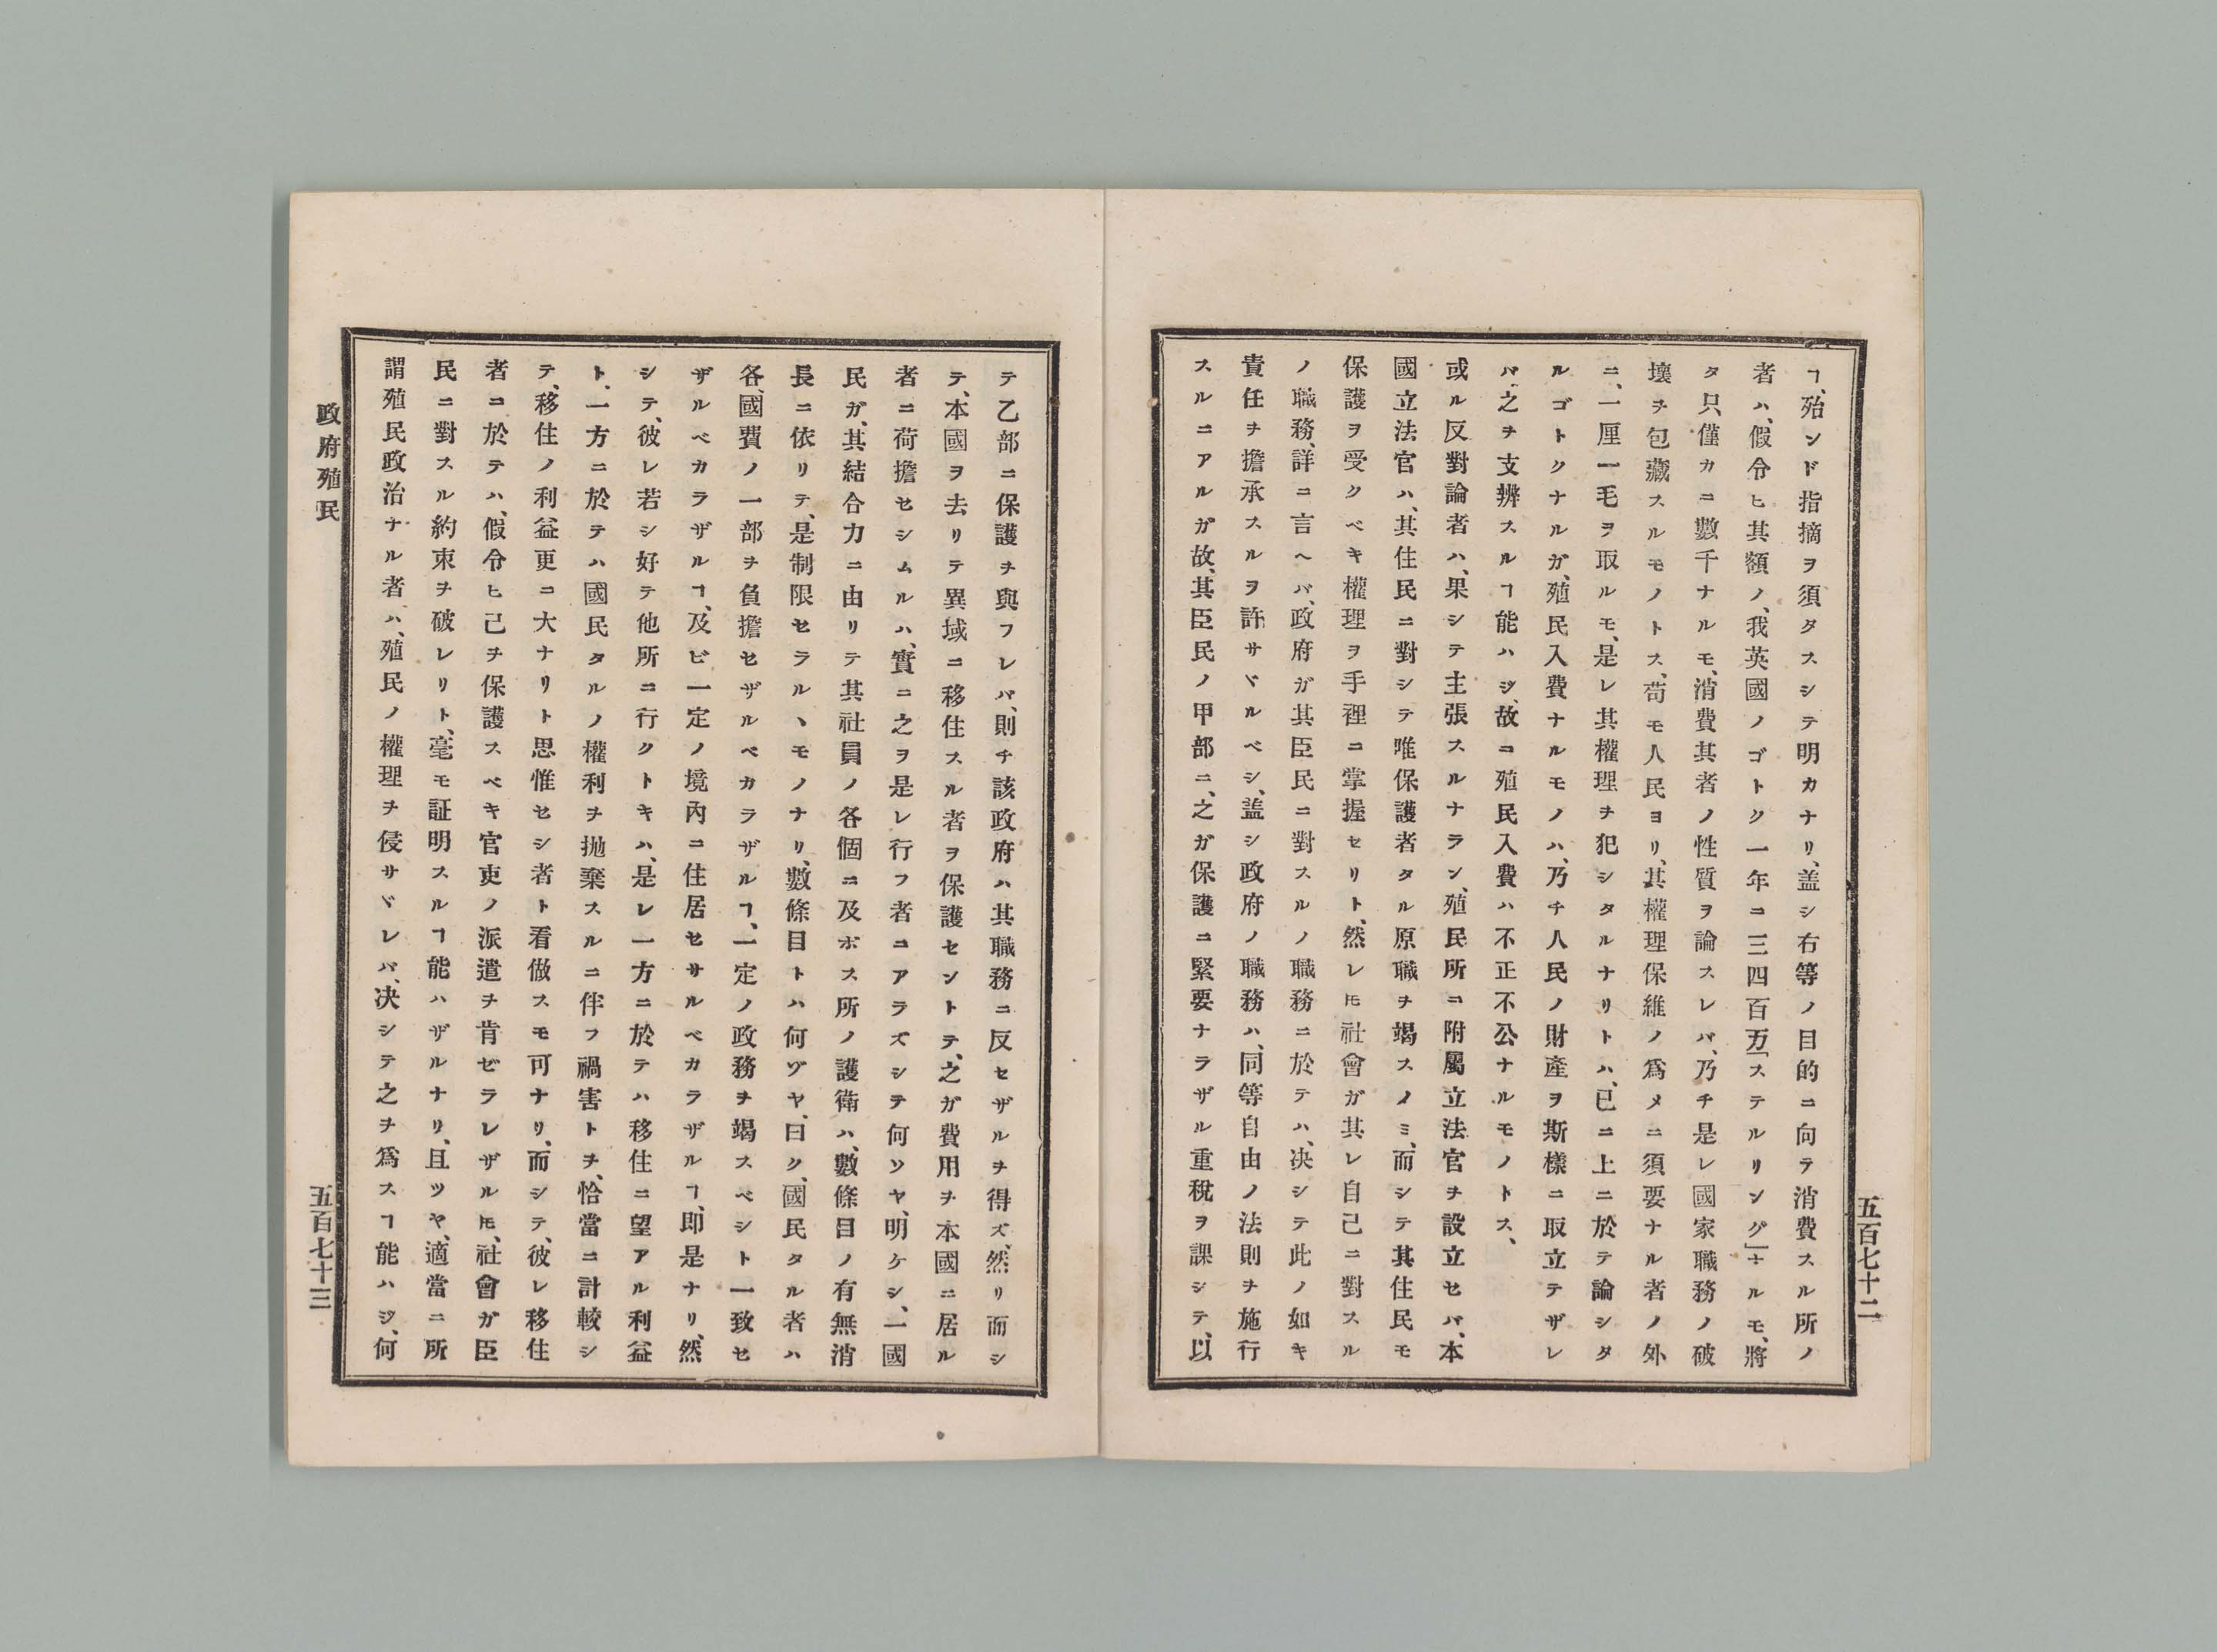 五百七十二
ヿ、殆ンド指摘ヲ須タスシテ明カナリ、盖シ右等ノ目的ニ向テ消費スル所ノ
者ハ、假令ヒ其額ノ、我英國ノゴトク一年ニ三四百万「ステルリング」ナルモ、將
タ只僅カニ數千ナルモ、消費其者ノ性質ヲ論スレバ、乃チ是レ國家職務ノ破
壞ヲ包藏スルモノトス、苟モ人民ヨリ、其權理保維ノ爲メニ須要ナル者ノ外
ニ、一厘一毛ヲ取ルモ、是レ其權理ヲ犯シタルナリトハ、已ニ上ニ於テ論シタ
ルゴトクナルガ、殖民入費ナルモノハ、乃チ人民ノ財產ヲ斯樣ニ取立テザレ
バ、之ヲ支辨スルヿ能ハジ、故ニ殖民入費ハ不正不公ナルモノトス、
或ル反對論者ハ、果シテ主張スルナラン、殖民所ニ附屬立法官ヲ設立セバ、本
國立法官ハ、其住民ニ對シテ唯保護者タル原職ヲ竭スノミ、而シテ其住民モ
保護ヲ受クベキ權理ヲ手裡ニ掌握セリト、然レ𪜈社會ガ其レ自己ニ對スル
ノ職務、詳ニ言ヘバ、政府ガ其臣民ニ對スルノ職務ニ於テハ、决シテ此ノ如キ
責任ヲ擔承スルヲ許サヾルベシ、盖シ政府ノ職務ハ、同等自由ノ法則ヲ施行
スルニアルガ故、其臣民ノ甲部ニ、之ガ保護ニ緊要ナラザル重稅ヲ課シテ、以
テ乙部ニ保護ヲ與フレバ、則チ該政府ハ其職務ニ反セザルヲ得ズ、然リ而シ
テ、本國ヲ去リテ異域ニ移住スル者ヲ保護セントテ、之ガ費用ヲ本國ニ居ル
者ニ荷擔セシムルハ、實ニ之ヲ是レ行フ者ニアラズシテ何ソヤ、明ケシ、一國
民ガ、其結合力ニ由リテ其社員ノ各個ニ及ボス所ノ護衛ハ、數條目ノ有無消
長ニ依リテ、是制限セラルヽモノナリ、數條目トハ何ゾヤ、曰ク、國民タル者ハ
各、國費ノ一部ヲ負擔セザルベカラザルヿ、一定ノ政務ヲ竭スベシト一致セ
ザルベカラザルヿ、及ビ一定ノ境內ニ住居セサルベカラザルヿ、即是ナリ、然
シテ、彼レ若シ好テ他所ニ行クトキハ、是レ一方ニ於テハ移住ニ望アル利益
ト、一方ニ於テハ國民タルノ權利ヲ抛棄スルニ伴フ禍害トヲ、恰當ニ計較シ
テ、移住ノ利益更ニ大ナリト思惟セシ者ト看做スモ可ナリ、而シテ、彼レ移住
者ニ於テハ、假令ヒ己ヲ保護スベキ官吏ノ派遣ヲ肯ゼラレザル𪜈、社會ガ臣
民ニ對スル約束ヲ破レリト、毫モ証明スルヿ能ハザルナリ、且ツヤ、適當ニ所
謂殖民政治ナル者ハ、殖民ノ權理ヲ侵サヾレバ、决シテ之ヲ爲スヿ能ハジ、何
政府殖民
五百七十三